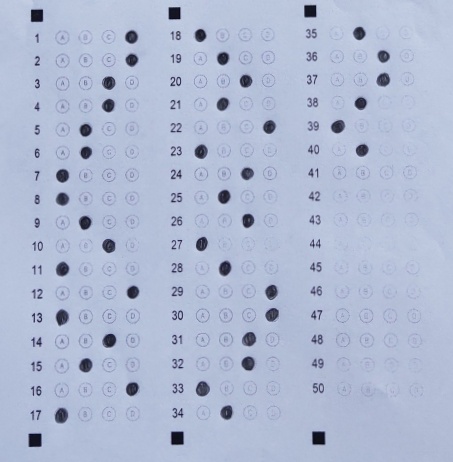 1 A B C
2 A B C
3 A B D
4 A B D
5 A C D
6 A C D
7 B C D
8 B C D
9 A C D
10 A B D
11 B C D
12 A B C
13 B C D
14 A B D
15 A C D
16 A B C
17 B C D
18 B C D
19 A C D
20 A B D
21 A C D
22 A B C
23 B C D
24 A B D
25 A C D
26 A B D
27 B C D
28 A C D
29 A B C
30 A B C
31 A B D
32 A B D
33 B C D
34 A C D
35 A C D
36 A B D
37 A B D
38 A C D
39 B C D
40 A C D
41 A B C D
42 A B C D
43 A B C D
44
45 A B C D
46 A B C D
47 A B C D
48 A B C D
49 A B C D
50 A B C D